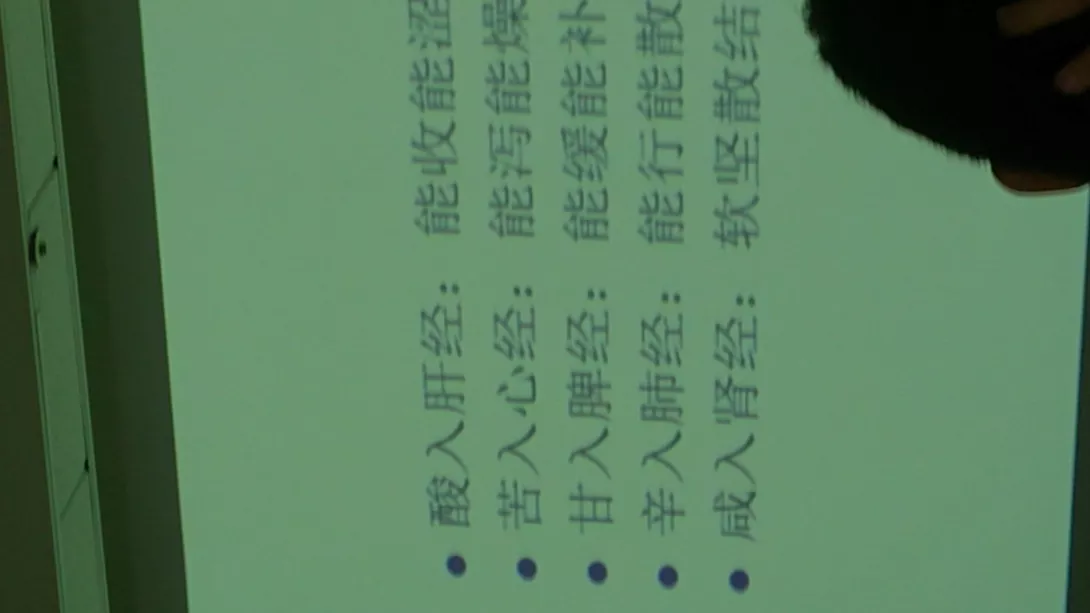 • 酸入肝经：能收能涩
• 苦入心经：能泻能燥
• 甘入脾经：能缓能补
• 辛入肺经：能行能散
• 咸入肾经：软坚散结